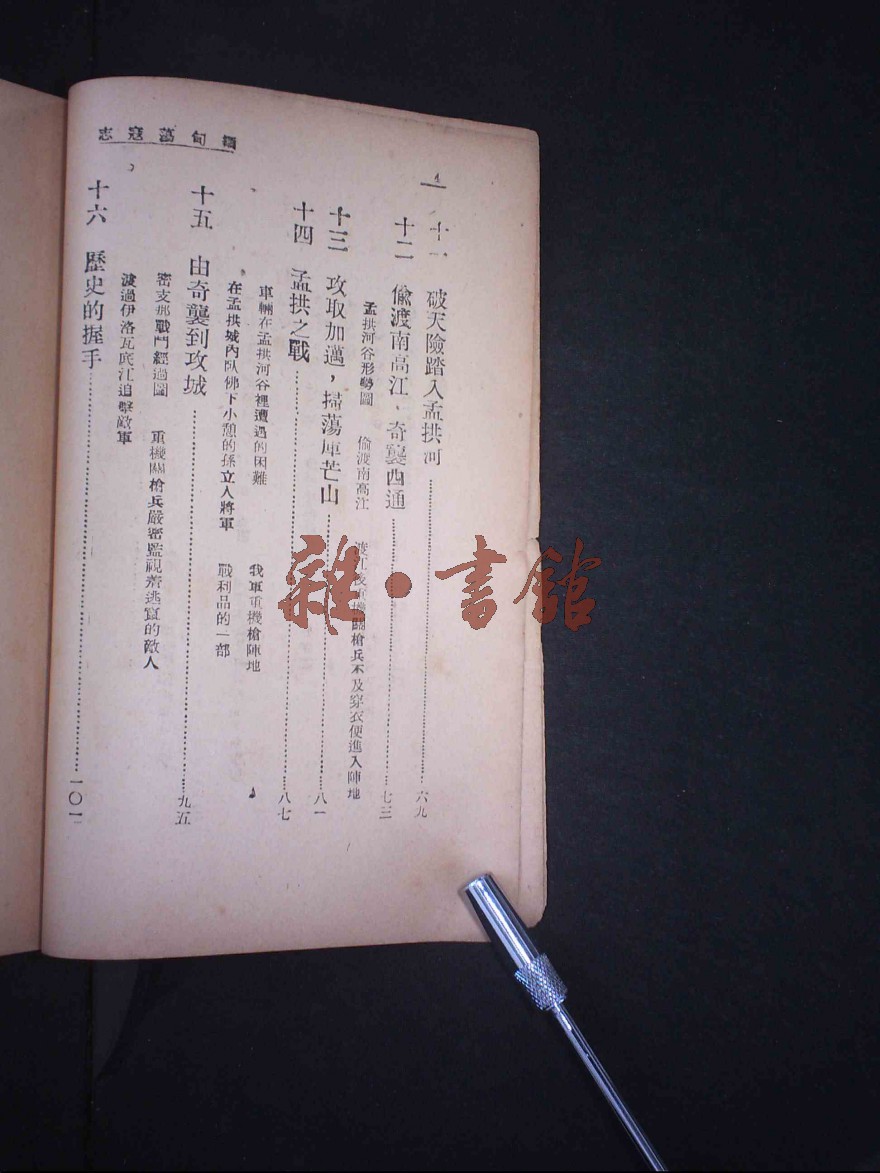 緬甸蕩寇志
4
十一 破天險踏入孟拱河……六九
十二 偸渡南高江，奇襲西通……七三
孟拱河谷形勢圖 偸渡南高江 渡江後重機關槍兵不及穿衣便進入陣地
十三 攻取加邁，掃蕩庫芒山……八一
十四 孟拱之戰……八七
車輛在孟拱河谷裡遭遇的困難 我軍重機槍陣地
在孟拱城內臥佛下小憩的孫立人將軍 戰利品的一部
十五 由奇襲到攻城……九五
密支那戰鬥經過圖 重機關槍兵嚴密監視着逃竄的敵人
渡過伊洛瓦底江追擊敵軍
十六 歷史的握手……一〇一
雜·書館